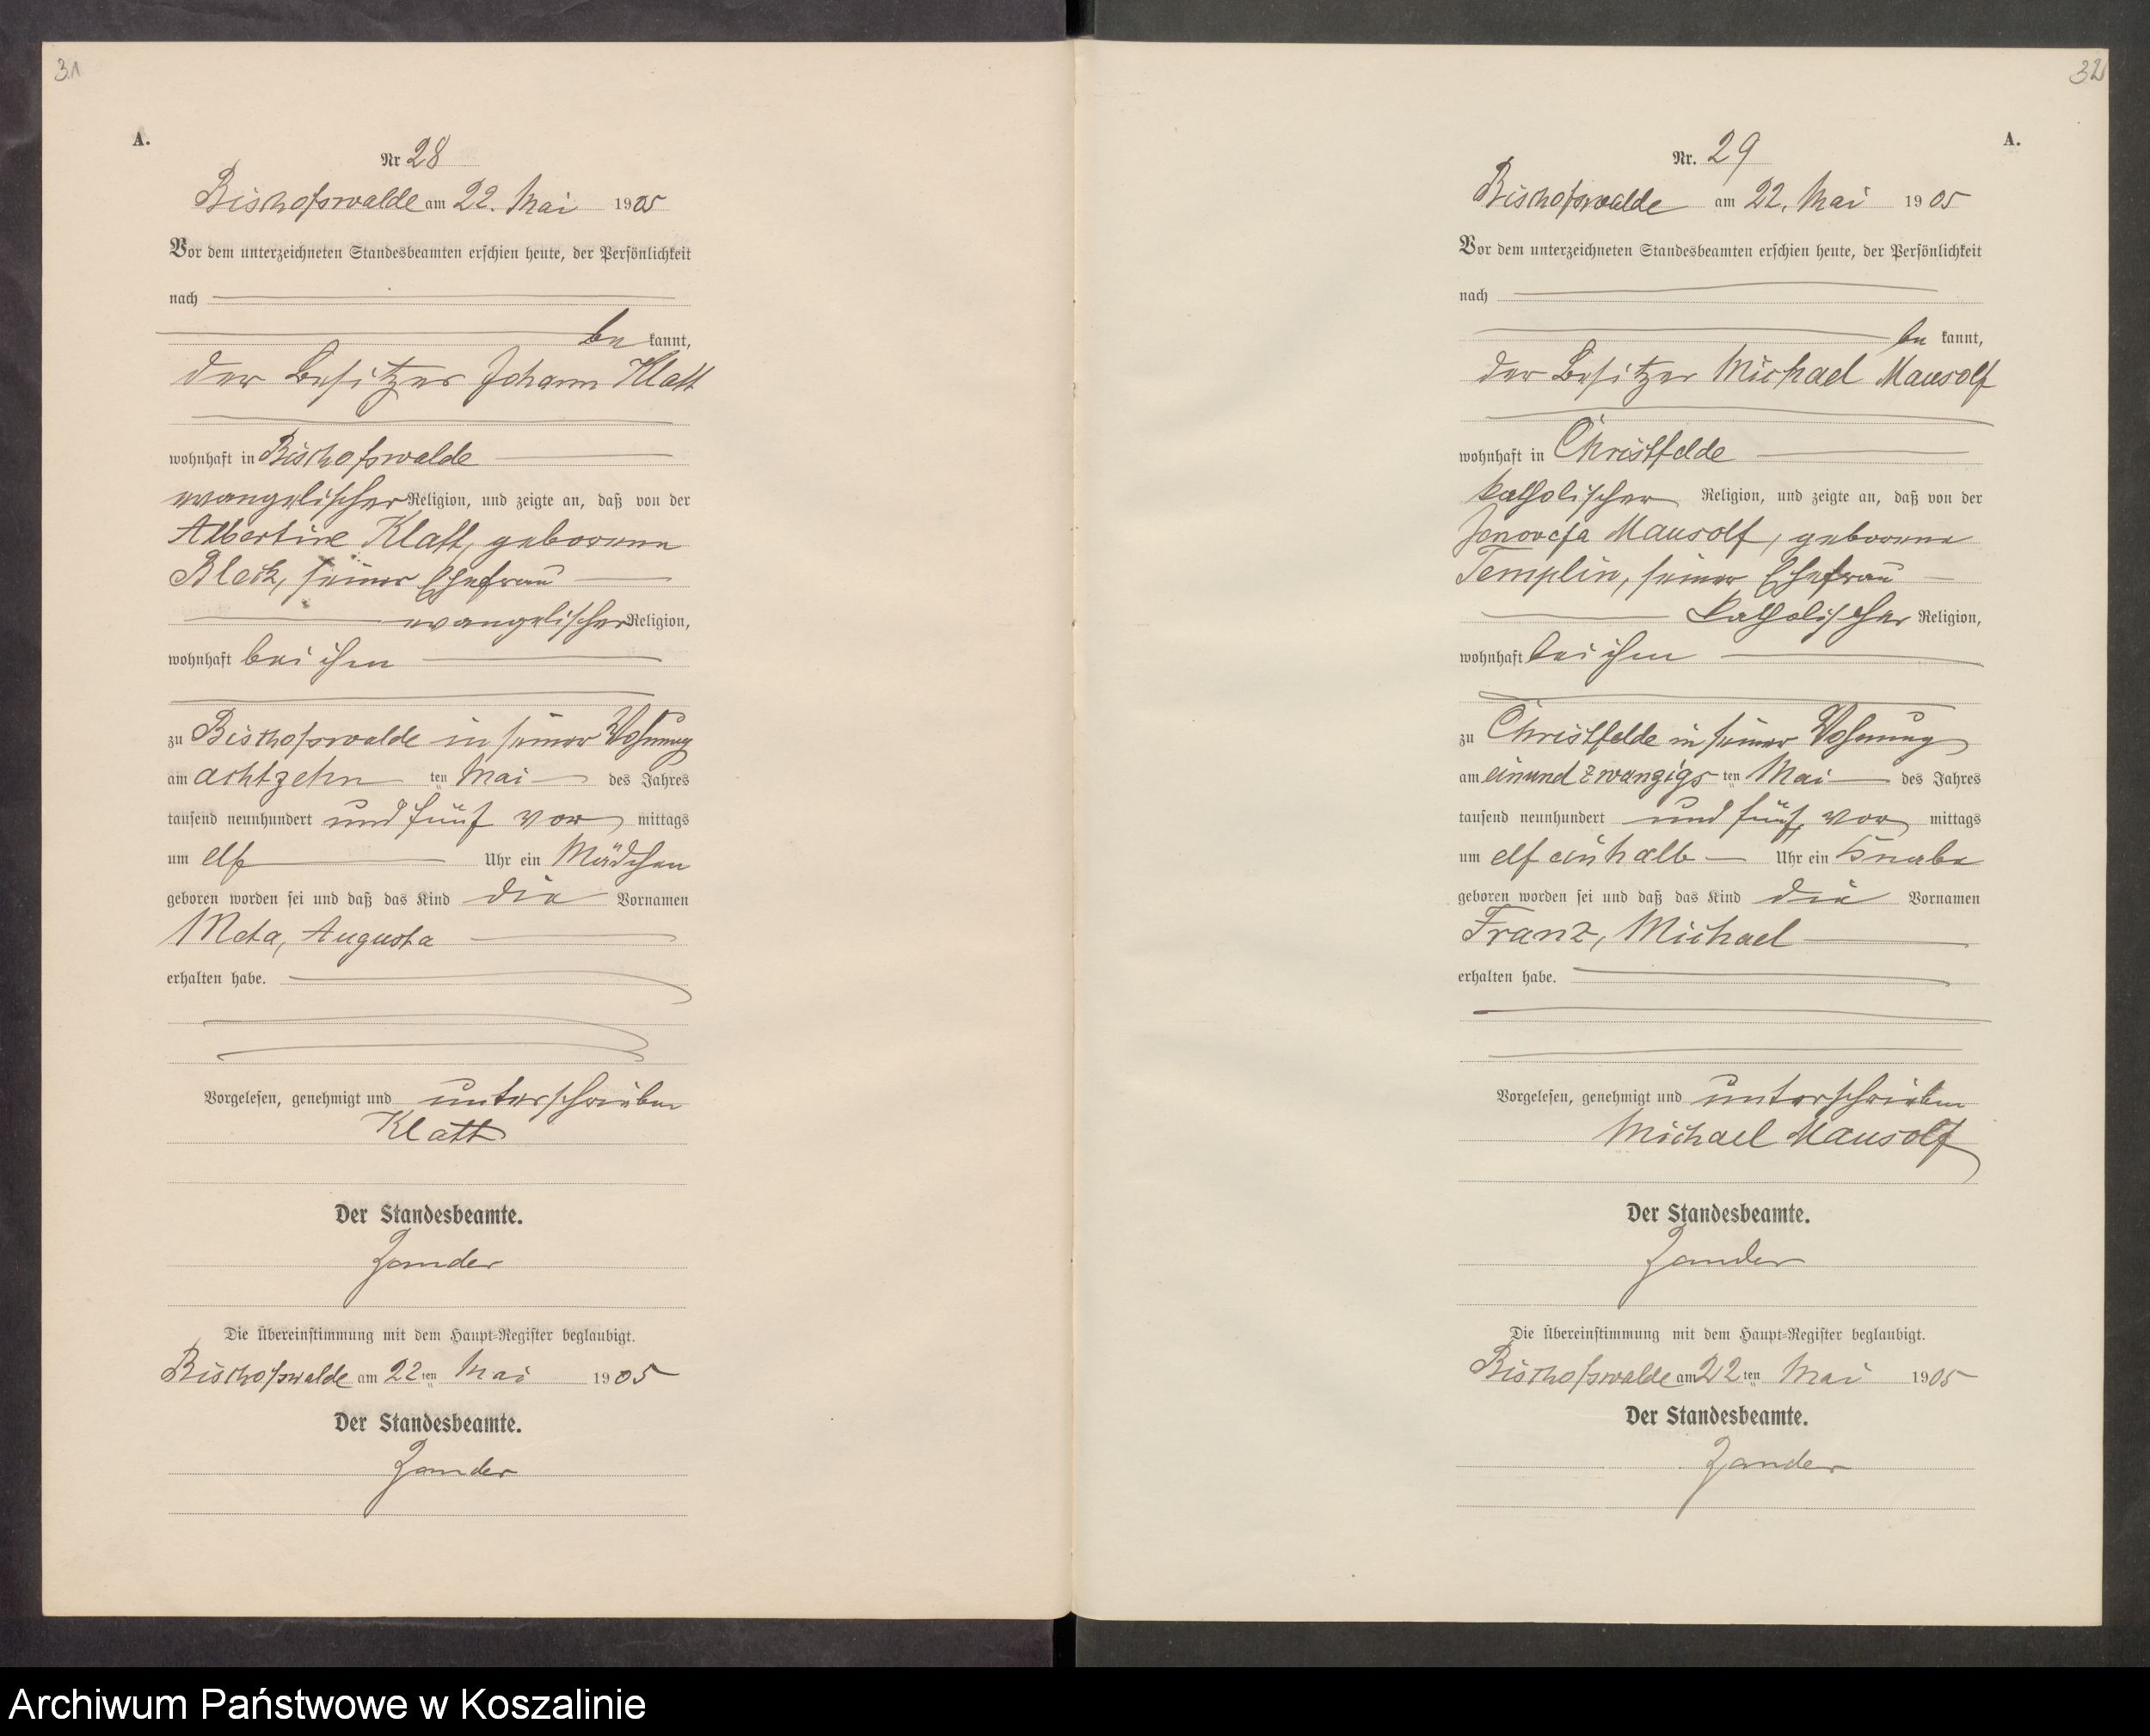 31
A.
Nr 28
Bischofswalde am 22. Mai 1905
Vor dem unterzeichneten Standesbeamten erschien heute, der Persönlichkeit
nach
bekannt,
der Besitzer Johann Klatt
wohnhaft in Bischofswalde
evangelischer Religion, und zeigte an, daß von der
Albertine Klatt, geborene
Bleck, seiner Ehefrau
evangelischer Religion,
wohnhaft bei ihm
zu Bischofswalde in seiner Wohnung
am achtzehn ten Mai des Jahres
tausend neunhundert und fünf vor mittags
um elf Uhr ein Mädchen
geboren worden sei und daß das Kind die Vornamen
Meta, Augusta
erhalten habe.
Vorgelesen, genehmigt und unterschrieben
Klatt
Der Standesbeamte.
Zander
Die Übereinstimmung mit dem Haupt-Register beglaubigt.
Bischofswalde am 22 ten Mai 1905
Der Standesbeamte.
Zander
32
A.
Nr. 29
Bischofswalde am 22. Mai 1905
Vor dem unterzeichneten Standesbeamten erschien heute, der Persönlichkeit
nach
be kannt,
der Besitzer Michael Mausolf
wohnhaft in Christfelde
katholischer Religion, und zeigte an, daß von der
Mausolf, geborene
Templin, seiner Ehefrau
katholischer Religion,
wohnhaft bei ihm
zu Christfelde in seiner Wohnung
am einundzwanzigs ten Mai des Jahres
tausend neunhundert und fünf, vor mittags
um elf einhalb Uhr ein Knabe
geboren worden sei und daß das Kind die Vornamen
Franz, Michael
erhalten habe.
Vorgelesen, genehmigt und unterschrieben
Michael Mausolf
Der Standesbeamte.
Zander
Die Übereinstimmung mit dem Haupt-Register beglaubigt.
Bischofswalde am 22 ten Mai 1905
Der Standesbeamte.
Zander
Archiwum Państwowe w Koszalinie